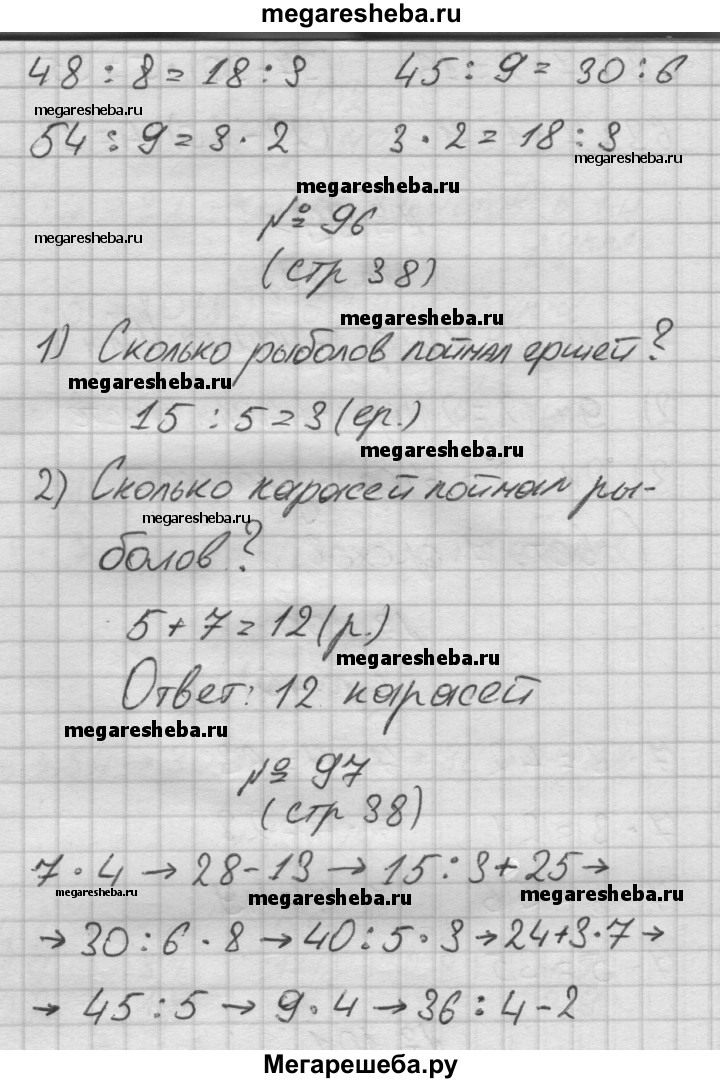 megaresheba.ru
48 : 8 = 18 : 3 45 : 9 = 30 : 6
megaresheba.ru
54 : 9 = 3 · 2 3 · 2 = 18 : 3
megaresheba.ru
megaresheba.ru
№ 96
megaresheba.ru
(стр 38)
megaresheba.ru
1) Сколько рыболов поймал ершей?
megaresheba.ru
15 : 5 = 3 (ер.)
megaresheba.ru
2) Сколько карасей поймал ры-
megaresheba.ru
болов?
5 + 7 = 12 (р.)
megaresheba.ru
Ответ: 12 карасей
megaresheba.ru
№ 97
(стр 38)
7 · 4 → 28 - 13 → 15 : 3 + 25 →
megaresheba.ru megaresheba.ru megaresheba.ru
→ 30 : 6 · 8 → 40 : 5 · 3 → 24 + 3 · 7 →
→ 45 : 5 → 9 · 4 → 36 : 4 - 2
Мегарешеба.ру